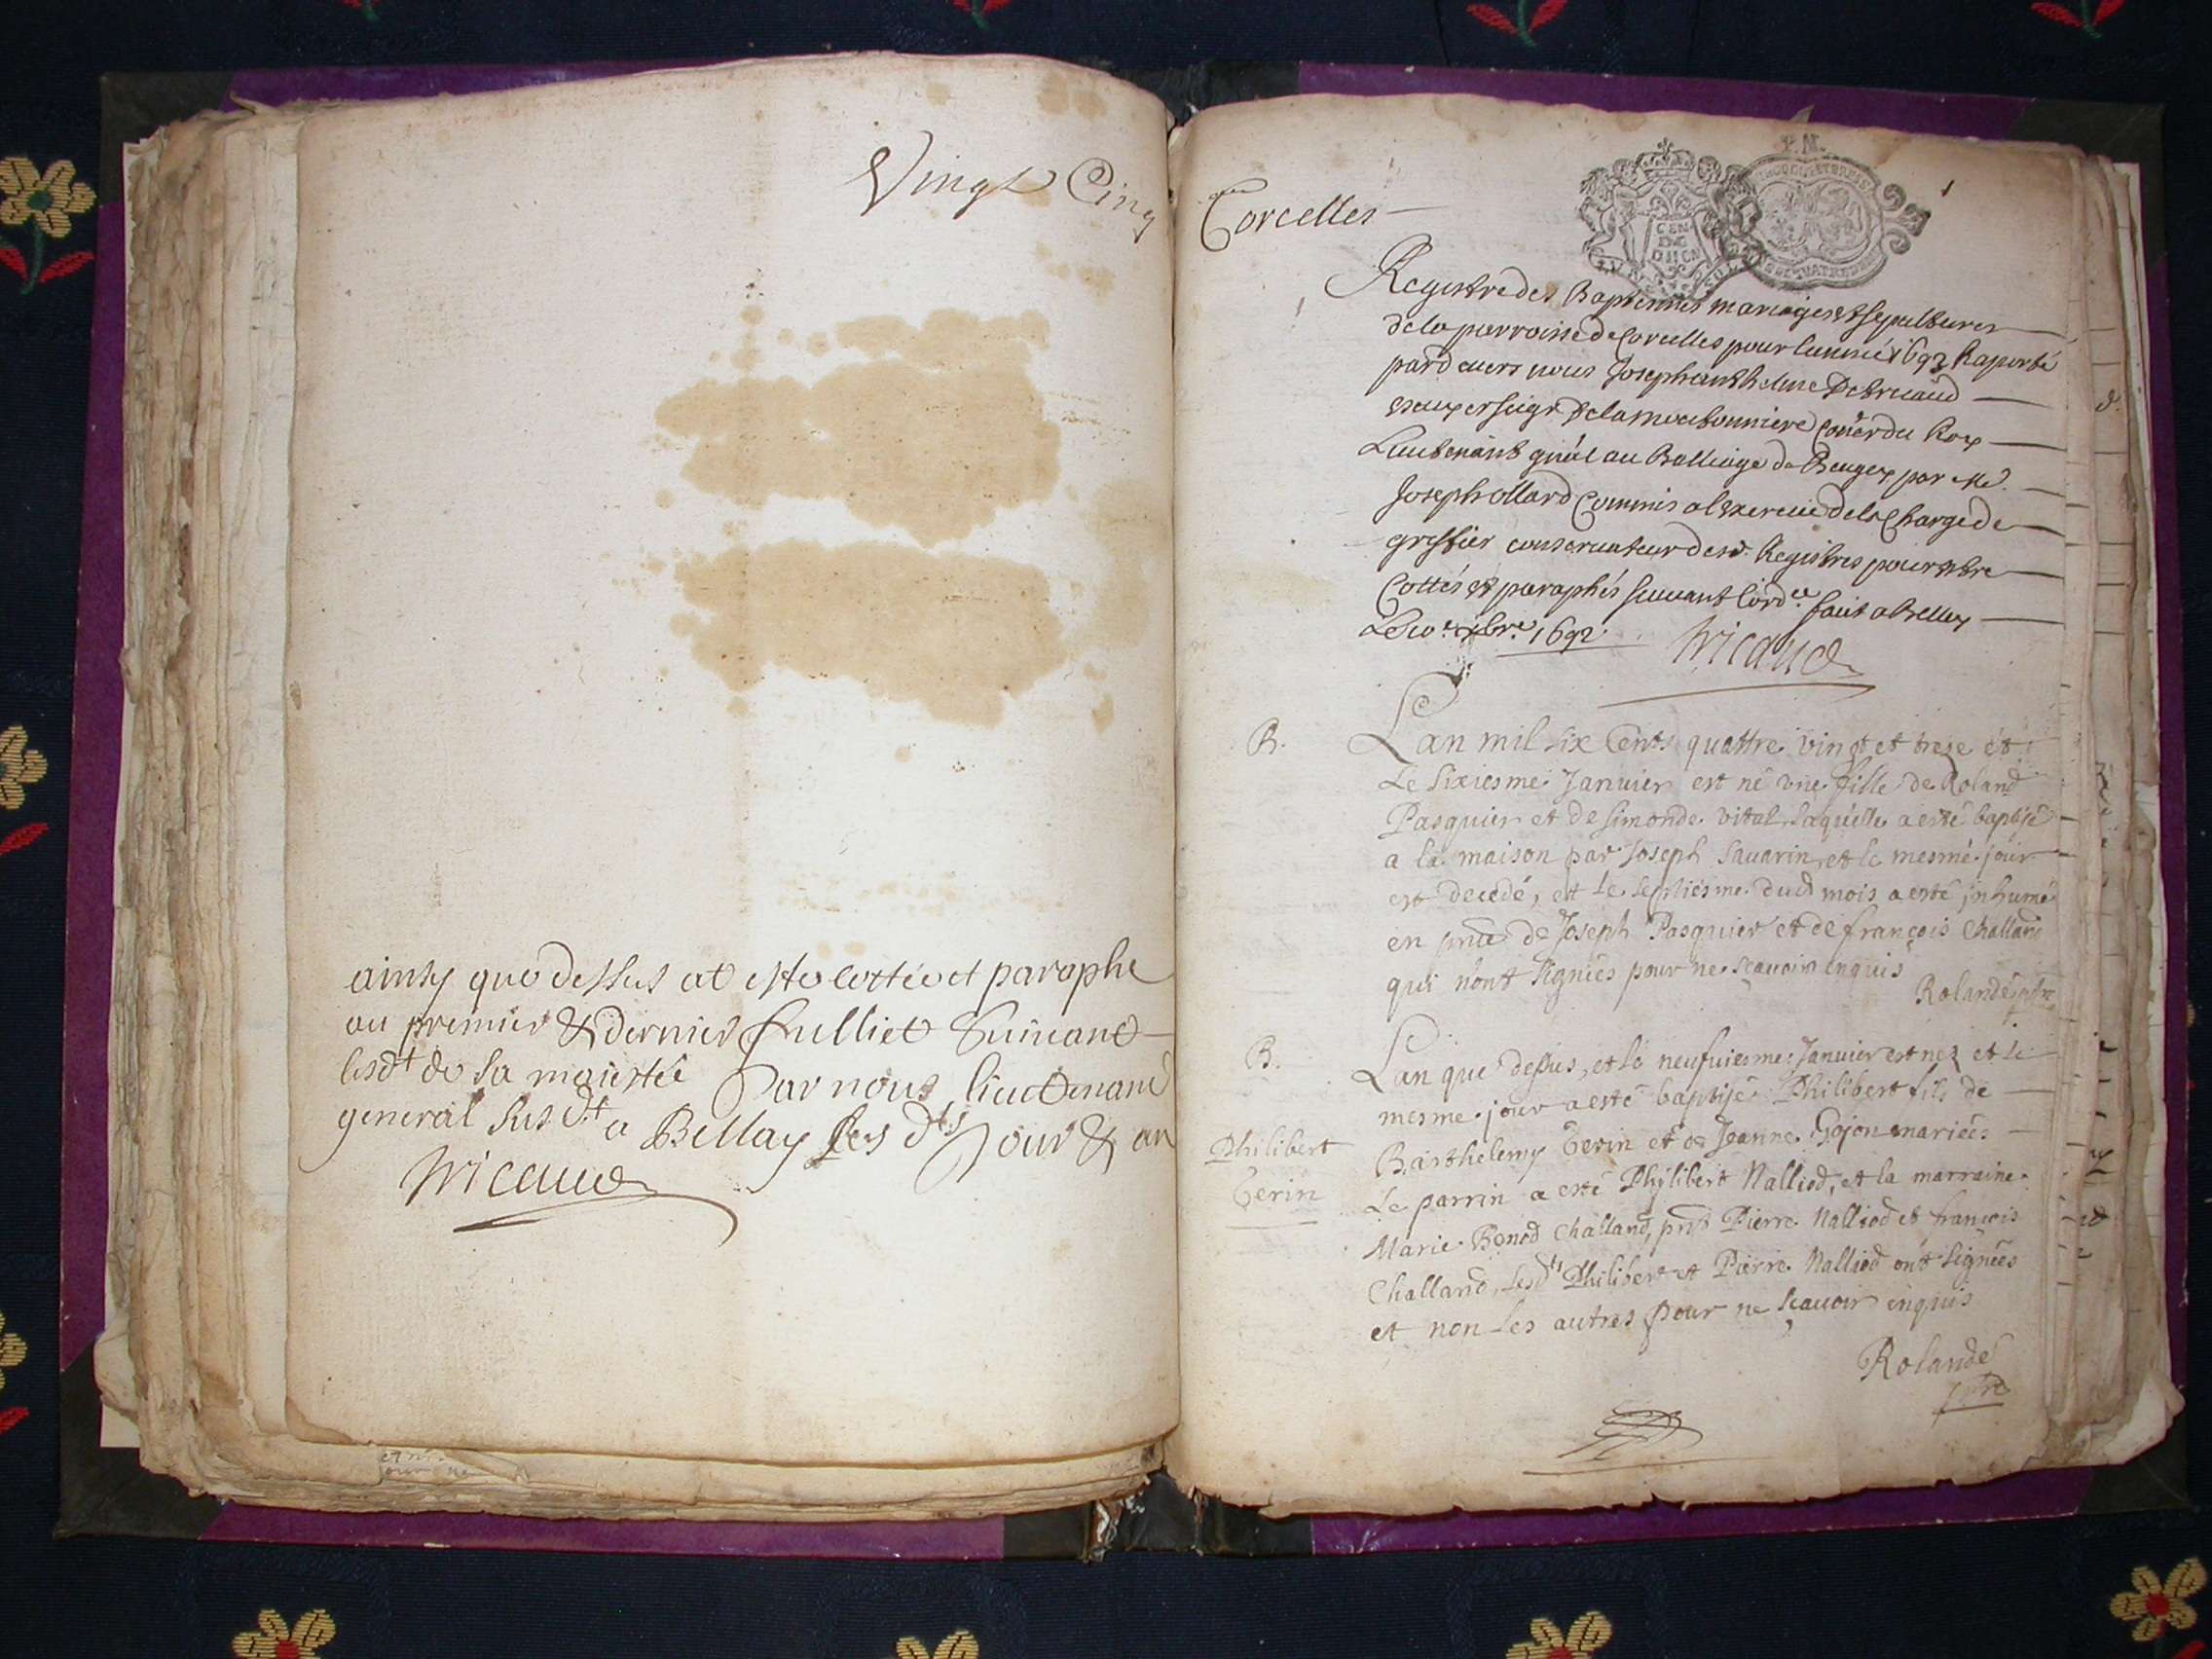 Vingt Cinq
ainsy que dessus at esté cottéet paraphe
au premier & dernier fulliet Suiuant
lesdt de sa maiesté Par nous lieutenant
general susdt a Bellay les dts Jour & an
Corcelles
1
Registre des Baptesmes mariages et sepultures
de la parroisse de Corcelles pour lannée 1693 Raporté
pard euers nous Joseph anthelme
escuyer seigr de la Conër du Roy
Lieutenant gnāl au Balliage de Beugey par Me
Joseph ollard Commis a lexercice de la Charge de
greffier conseruateur desd. Registres pour estre
Cottés et paraphés suiuant lordce fait a Belley
xbre 1692
B. Lan mil six Cents quattre vingt et treze et
Le sixiesme Januier est né vne fille de Roland
Pasquier et de simonde vital laquelle a esté baptisé
a la maison par Joseph Sauarin et le mesme jour
est decedé, et le septiesme dud mois a esté jnhumé
en pnce de Joseph Pasquier et de françois Challand
qui nont signées pour ne scauoir enquis
Rolandé
B. Lan que dessus, et le neufuiesme Januier est nez et le
mesme jour a esté baptisé Philibert fils de
Philibert Barthelemy Gerin et de Jeanne Gojon mariées
Gerin Le parrin a esté Philibert Nalliod, et la marraine
Marie Benod Challand, pnt Pierre Nalliod et françois
Challand, lesdts Philibert et Pierre Nalliod ont signées
et non les autres pour ne scauoir enquis
Rolandé